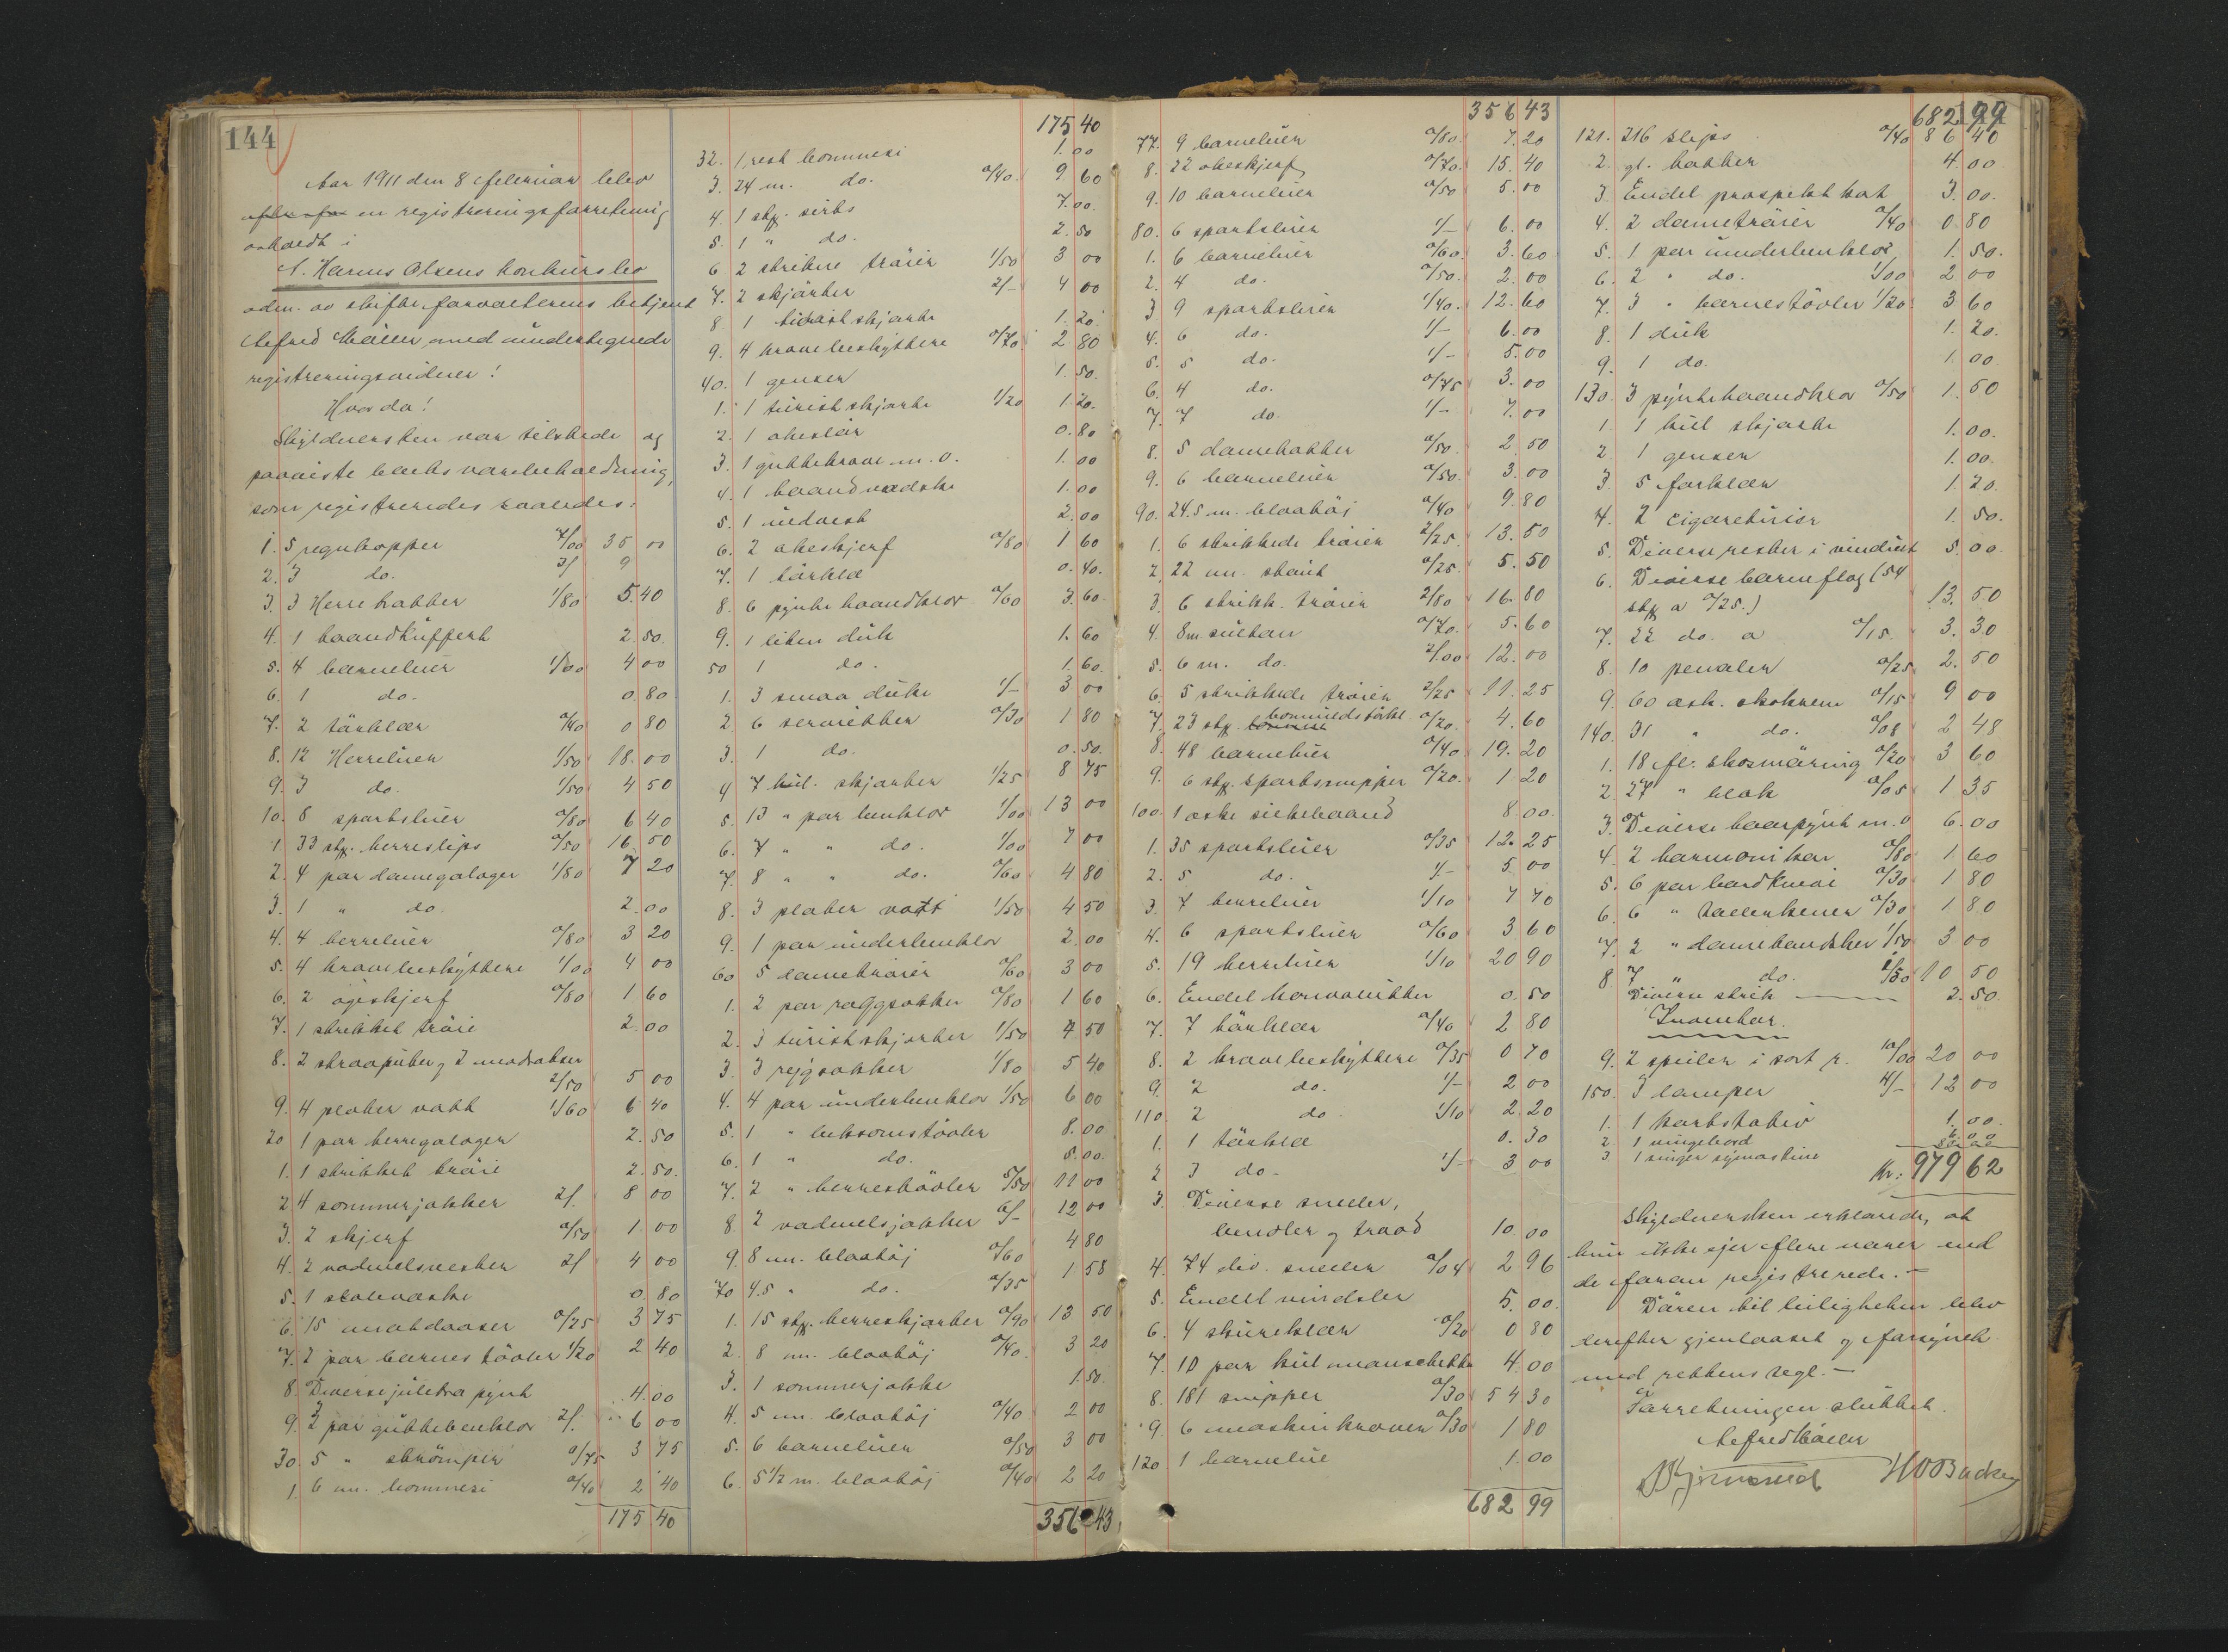 144
Aar 1911 den 8 februar blev
en registreringsforretning
avholdt i
A. Hanna Olsens konkursbo
adm. av skifteforvalterens betjent
Alfred Møller med undertegnede
registreringsvidner!
Hvorda!
Skyldnersken var tilstede og
paaviste boets varebeholdning,
som registreredes saaledes:
1. 5 regnkapper 7/00 35 00
2. 3 do. 3/ 9
3. 3 Herre hatter 1/80 5.40
4. 1 haandkuffert 2.50
5. 4 barneluer 1/00 4 00
6. 1 do. 0.80
7. 2 tørklær 0/40 0 80
8. 12 Herreluer 1/50 18.00
9. 3 do. 1/50 4 50
10. 8 sportsluer 0/80 6 40
1. 33 stk. herreslips 0/50 16.50
2. 4 par damegaloger 1/80 7 20
3. 1 " do. 2.00
4. 4 herreluer 0/80 3 20
5. 4 kravebeskyttere 1/00 4 00
6. 2 ageskjerf 0/80 1 60
7. 1 strikket trøie 2.00
8. 2 skraaputer, 2 madrasser
2/50 5 00
9. 4 plater vatt 1/60 6 40
20 1 par herregaloger 2.50
1. 1 strikket trøie 2.50.
2. 4 sommerjakker 2/. 8 00
3. 2 skjerf 0/50 1.00
4. 2 vadmelsvester 2/ 4 00
5. 1 skolevaske 0.80
6. 15 matdaaser 0/25 3 75
7. 2 par barnestøvler 1/20 2 40
8. Diverse juletræpynt 4.00
9. 3 par guttebenklær 2/. 6 00
30. 5 " strømper 0/75 3 75
1. 6 m. bommesi 0/40 2 40
175 40
175 40
32. 1 rest bommesi 1.00
3. 24 m. do. 0/40. 9 60
4. 1 stk. sirts 7.00.
5. 1 " do. 2.50
6 2 strikne trøier 1/50 3 00
7. 2 skjørter 2/- 4 00
8. 1 skjorte 1.20
9. 4 kravebeskyttere 0/70 2 80
40. 1 genser 1.50.
1. 1 turistskjorte 1/20 1.20.
2. 1 akeslør 0.80
3. 1 guttekrave m.v. 1.00
4. 1 haandvæske 1.00
5. 1 uldvest 2.00
6. 2 akeskjerf 0/80 1 60
7. 1 tørklæ 0.40.
8. 6 pyntehaandklær 0/60 3.60.
9. 1 liten duk 1.60
50 1 do. 1.60.
1. 3 smaa duke 1/- 3 00
2. 6 servietter 0/30 1 80
3. 1 do. 0.50.
4 7 hul. skjorter 1/25 8 75
5. 13 " par benklær 1/00 13 00
6. 7 " " do. 1/00 7 00
7. 8 " " do. 0/60 4 80
8. 3 plater vatt 1/50 4 50
9. 1 par underbenklær 2.00
60 5 dametrøier 0/60 3 00
1. 2 par raggsokker 0/80 1 60
2. 3 turistskjorter 1/50 4 50
3. 3 rejgsokker 1/80 5 40
4. 4 par underbenklær 1/50 6 00
5. 1 " beksømstøvler 8.00
6. 1 " do. 5.00.
7. 2 " herrestøvler 5/50 11 00
8. 2 vadmelsjakker 6/- 12 00
9. 8 m. blaatøj 0/60 4 80
70 4.5 " do. 0/35 1 58
1. 15 stk. herreskjorter 0/90 13 50
2. 8 m. blaatøj 0/40. 3 20
3. 1 sommerjakke 1.50.
4. 5 m. blaatøj 0/40 2 00
5. 6 barneluer 0/50 3 00
6. 5 1/2 m. blaatøj 0/40 2 20
356 43
356 43
77. 9 barneluer 0/80. 7.20
8. 22 akeskjerf 0/70. 15.40
9. 10 barneluer 0/50 5.00
80. 6 sportsluer 1/- 6.00
1. 6 barneluer 0/60. 3.60
2. 4 do. 0/50. 2.00
3 9 sportsluer 1/40. 12.60
4. 6 do. 1/- 6.00
5. 5 do. 1/- 5.00
6. 4 do. 0/75 3.00
7. 7 do. 1/- 7.00
8. 5 damehatter 0/50. 2 50
9. 6 barneluer 0/50. 3.00
90. 24.5 m. blaatøj 0/40 9.80
1. 6 strikkede trøier 2/25. 13.50
2. 22 m. stout 0/25. 5.50
3. 6 strikk. trøier 2/80 16.80
4. 8 m sultan 0/70. 5.60
5. 6 m. do. 2/00 12.00
6. 5 strikkede trøier 2/25 11.25
7. 23 stk. bomuldstørkl. 0/20. 4.60
8. 48 barneluer 0/40 19.20
9. 6 stk. sportssnipper 0/20. 1 20
100. 1 æske silkebaand 8.00.
1. 35 sportsluer 0/35 12.25
2. 5 do. 1/- 5 00
3. 7 herreluer 1/10 7 70
4. 6 sportsluer 0/60 3 60
5. 19 herreluer 1/10 20 90
6. Endel konvolutter 0.50
7. 7 tørklær 0/40 2 80
8. 2 kravebeskyttere 0/35 0 70
9. 2 do. 1/- 2 00
110. 2 do. 1/10 2.20
1. 1 tørklæ 0.30
2 3 do- 1/- 3 00
3. Diverse sneller,
bendler og traad 10.00
4. 74 div. sneller 0/04 2.96
5. Endel vindsler 5.00.
6. 4 skureklær 0/20 0 80
7. 10 par hul manschetter 4.00
8. 181 snipper 0/30 54 30
9. 6 maskinkraver 0/30 1 80
120 1 barnelue 1.00
682 99
682 99
121. 216 slips 0/40 86 40
2. gl. hatter 4.00
3. Endel prospektkort 3.00.
4. 2 dametrøier 0/40 0 80
5. 1 par underbenklær 1.50.
6. 2 " do. 1/00 2 00
7. 3 " barnestøvler 1/20. 3 60
8. 1 duk 1.20.
9. 1 do. 1.00
130. 3 pyntehaandklær 0/50 1.50
1. 1 hul skjorte 1.00.
2 1 genser 1.00.
3. 5 forklær 1.20.
4. 2 cigaretuier 1.50.
5. Diverse rester i vinduet 5.00.
6. Diverse barneflag (54
stk a 0/25.) 13.50
7. 22 do. a 0/15. 3.30
8. 10 penaler 0/25 2.50
9. 60 æsk. skokrem 0/15 9 00
140. 31 " do. 0/08 2 48
1. 18 fl. skosmøring 0/20 3 60
2. 27 " blæk 0/05 1 35
3. Diverse haarpynt m.v 6.00
4. 2 harmonikar 0/80 1 60
5. 6 par bordknive 0/30 1 80
6. 6 " tallerkener 0/30 1 80
7. 2 " damehandsker 1/50 3 00
8. 7 " do. 1/50 10 50
Diverse strik 2.50.
Inventar.
9. 2 speiler i sort r. 10/00 20 00
150. 3 lamper 4/- 12 00
1. 1 kortstativ 1.00.
2. 1 ringebord
3 1 singer symaskine
Kr.: 979 62
Skyldnersken erklærede, at
hun ikke ejer flere varer end
de foran registrerede. -
Døren til leiligheten blev
derefter gjenlaaset og forsynet
med rettens segl. -
Forretningen sluttet.
Alfred Møller